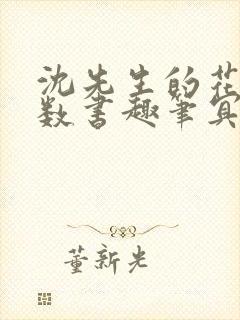 沈先生的花
数书趣笔真
董新光